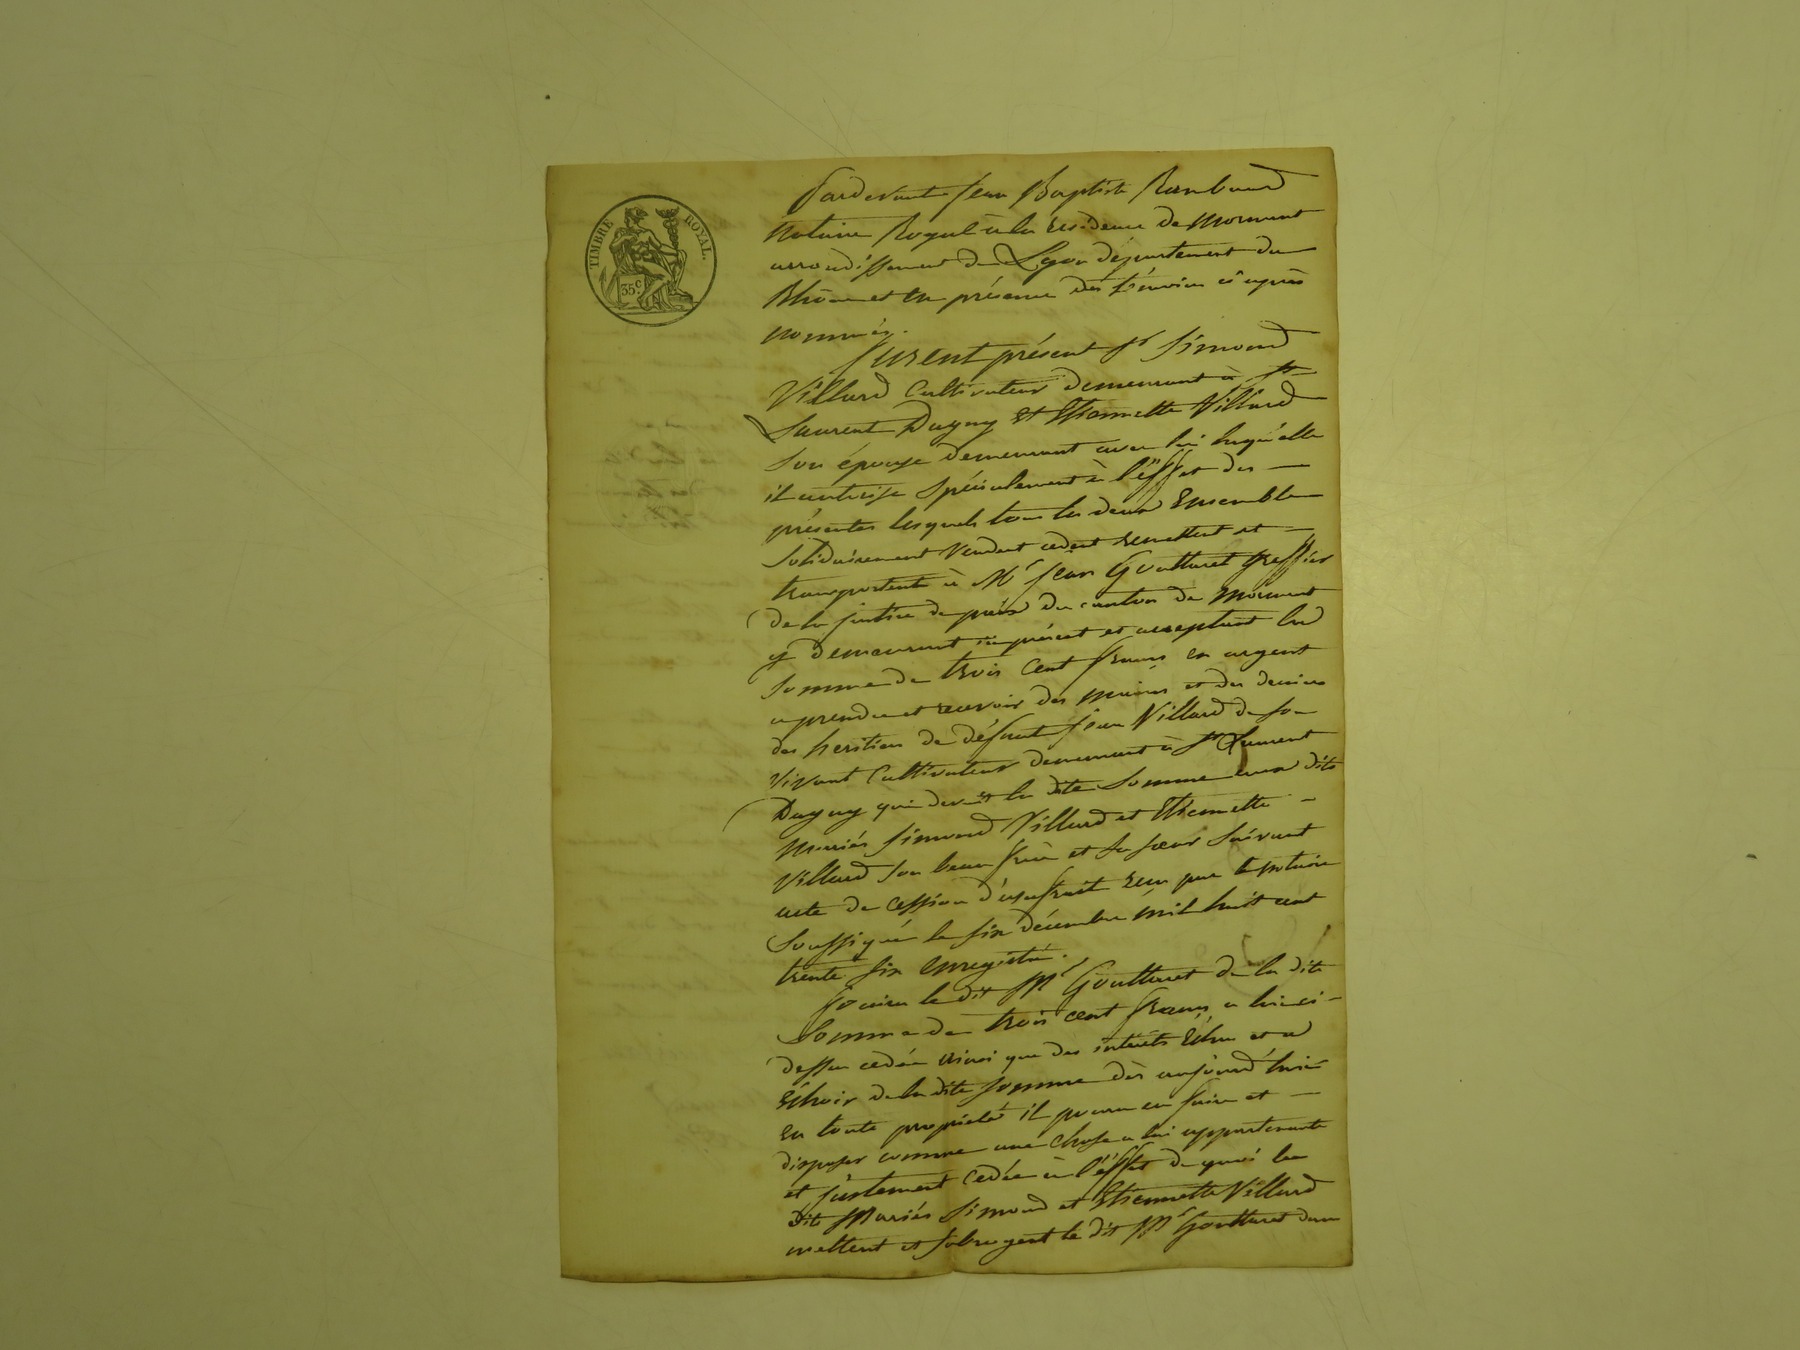 TIMBRE ROYAL.
35c
Pardevant Jean Baptiste Rambaud
Notaire Royal à la résidence de Mornant
arrondissement de Lyon département du
Rhône et en présence des témoins ci après
nommés.
furent présent Sr Simond
Villard Cultivateur demeurant à St
Laurent Dagny Et Etiennette Villard
Son épouse demeurant avec lui laqu'elle
il autorise Spécialement à l'éffet des
présentes lesquels tous les deux Ensemble
Solidairement Vendent cedent remettent et
transportent à Mr Jean Goutturet Greffier
de la justice de paix du canton de Mornant
y demeurant ici présent et acceptant la
Somme de trois Cent francs en argent
a prendre et recevoir des mains et des deniers
des heritiers de défunt Villard de Son
Vivant Cultivateur demeurant à St Laurent
Dagny qui devait la dite Somme aux dits
Mariés Simond Villard et Etiennette
Villard Son beau frère et Sa sœur Suivant
acte de cession d'usufruit reçu par le notaire
Soussigné le six décembre mil huit cent
trente six enregistré.
Jouira le dit Mr Goutturet de la dite
Somme de trois cent francs a lui ci
dessus cedée ainsi que des intérêts Echus et a
Echoir de la dite Somme dès aujourd'hui
En toute propriété il pourra en faire et
disposer comme une chose a lui appartenante
et justement cedée à l'éffet de quoi les
dits Mariés Simond et Etiennette Villard
mettent et subrogent le dit Mr Goutturet dans